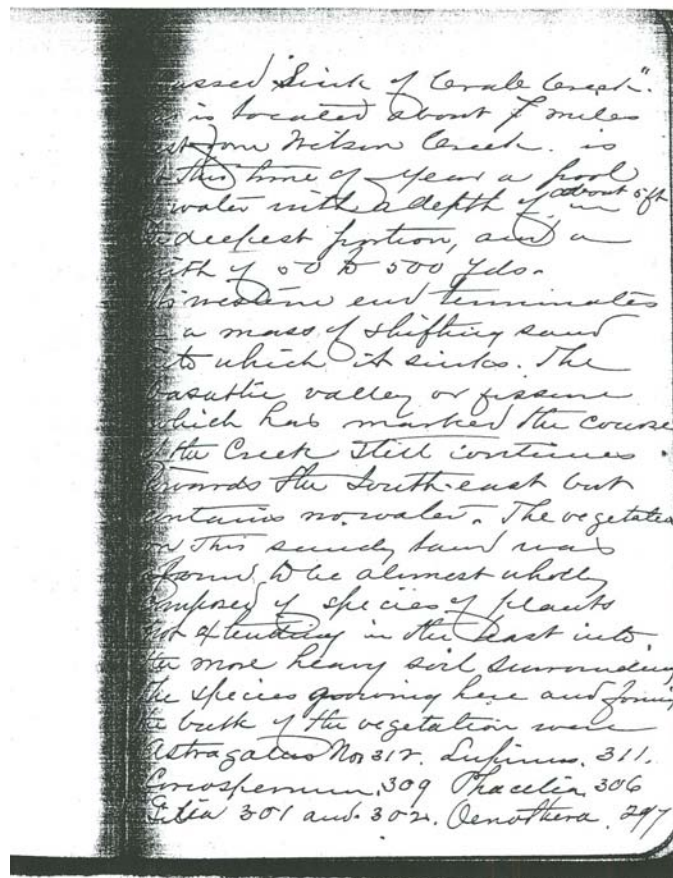 assed "Sink of Crab Creek".
is located about 7 miles
from Wilson Creek. is
this time of year a pool
water with a depth of about 5 ft in
deepest portion, and a
width of 50 to 500 yds.
Its western end terminates
a mass of shifting sand
into which it sinks. The
basaltic valley or fissure
which has marked the course
the Creek still continues
towards the South-east but
contains no water. The vegetation
on this sandy land was
found to be almost wholly
composed of species of plants
not extending in the least into
the more heavy soil surrounding
the species growing here and forming
the bulk of the vegetation were
Astragalus No. 312. Lupinus. 311.
309 Phacelia 306
Gilia 301 and 302. Oenothera. 297